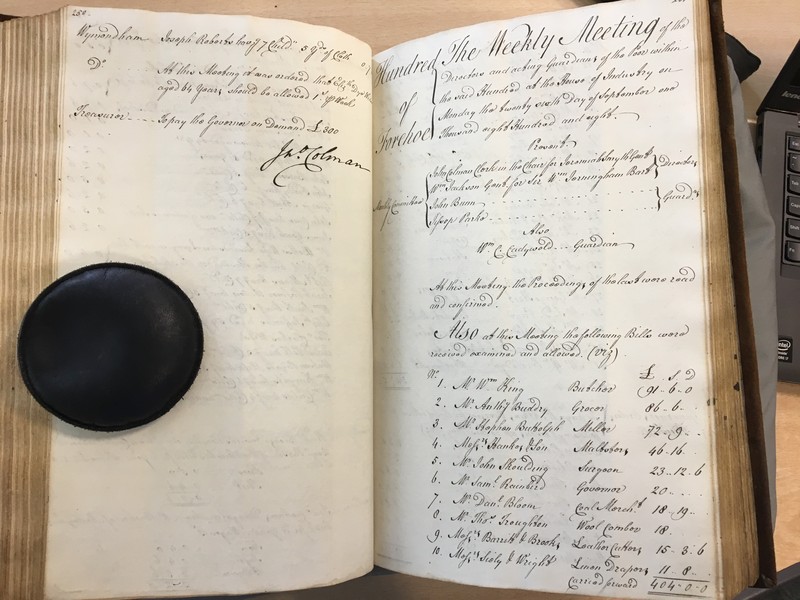 280.
Wymondham Joseph Roberts hav.g 7 Child.n 3 y.ds of Cloth
D.o At this Meeting it was ordered that
aged 64 Years, should be allowed 1.s p Week
Treasurer To pay the Governor on Demand £300
Jn.o Colman
Hundred
of
Forehoe
The Weekly Meeting of the
Directors and acting Guardians of the Poor within
the said Hundred at the House of Industry on
Monday the twenty sixth day of September one
Thousand eight Hundred and eight.
Present.
Weekly Committee
John Colman Clerk in the Chair for Jeremiah Smyth Gent.
W.m Jackson Gent. for Sir W.m Jerningham Bar.t
Directors
John Bunn
Jessop Parke
Guard.ns
Also
W.m C. Guardian
At this Meeting the Proceedings of the last were read
and confirmed.
Also at this Meeting the following Bills were
received examined and allowed. (viz)
N.o £ S D
1. M.r W.m King Butcher 91-6-0
2. M.r Anth.y Buddry Grocer 86-6-
3. M.r Stephen Butolph Miller 72-9-
4. Mess.rs Hanks & Son Maltsters 46-16.
5. M.r John Shoulding Surgeon 23-12-6
6. M.r Sam.l Rainbird Governor 20
7. M.r Dan.l Bloom Coal Merch.t 18-19-
8. M.r Tho.s Troughton Wool Comber 18.
9. Mess.rs Barrett & Brooks Leather Cutters 15-3-6
10. Mess.rs Sealy & Wright Linen Drapers 11-8-
Carried forward 404-0-0
lenovo
intel